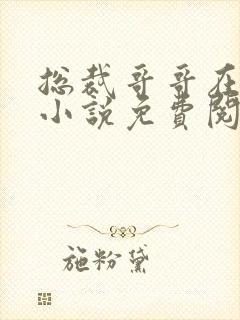 总裁哥哥在
小说免费阅
施粉黛